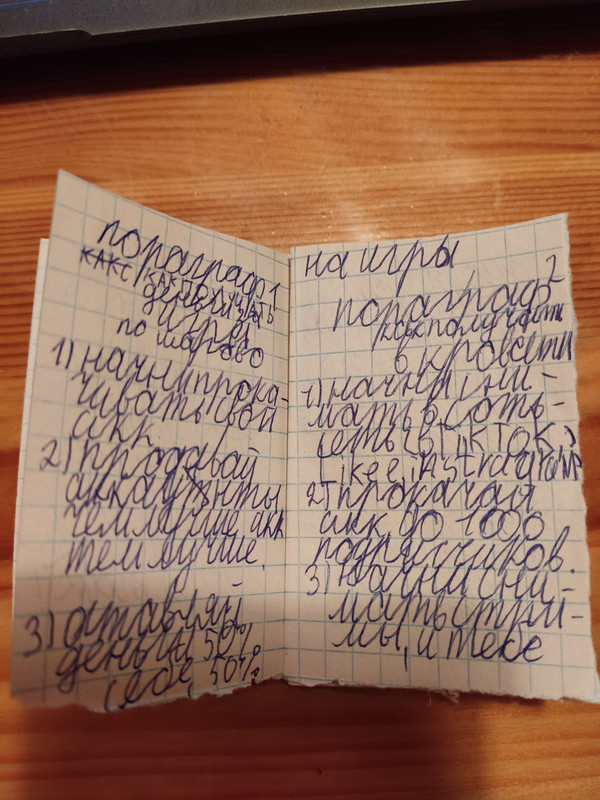 пораграф 1
КАКС КАК ПОЛУЧАТЬ
деньги за
игры
по
1) начни прока-
чивать свой
акк
2) продовай
аккаунты
чем лучше акк
тем лучше.
3) оставляй
деньги 50%
себе, 50%
на игры
пораграф 2
как получать
в
1) начни сни-
мать в соть-
сеть (в ТiкТок,
Likee, instragram)
2) прокачай
акк до 1000
подписчиков.
3) начни сни-
мать стри-
мы, и тебе